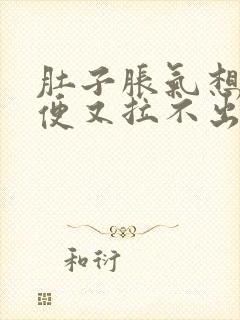 肚子脹氣想
便又拉不出
和衍